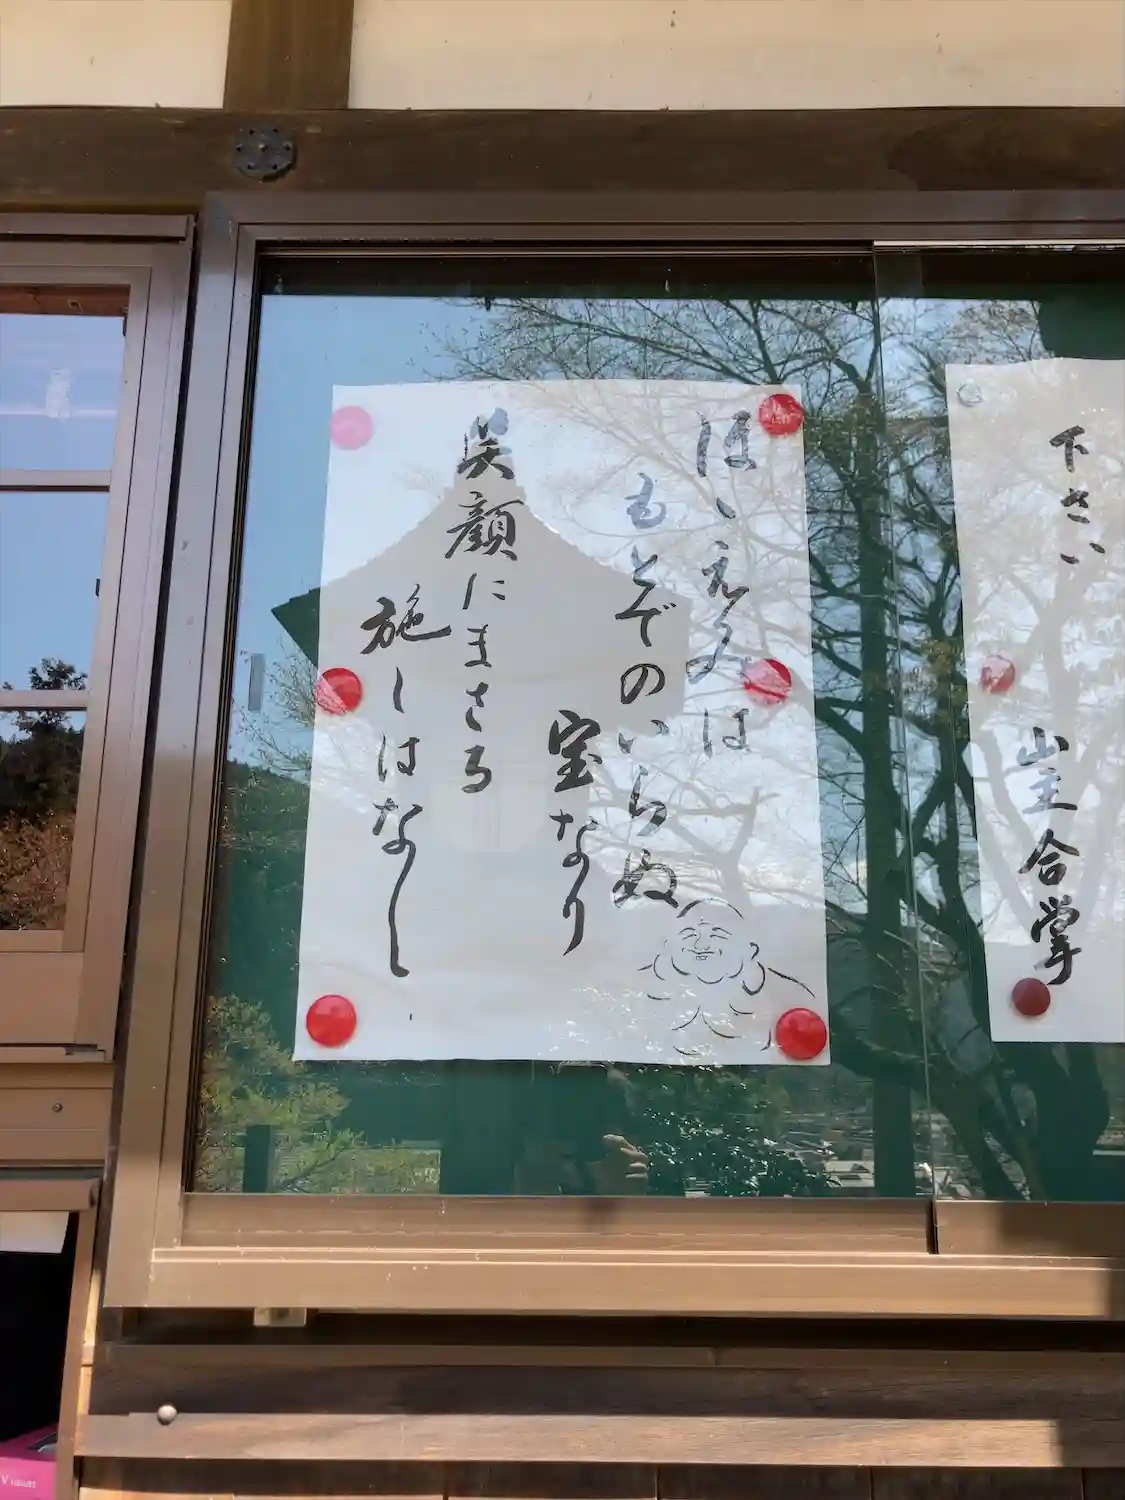 ほゝえみは
もとでのいらぬ
宝なり
笑顔にまさる
施しはなし
下さい
山主合掌